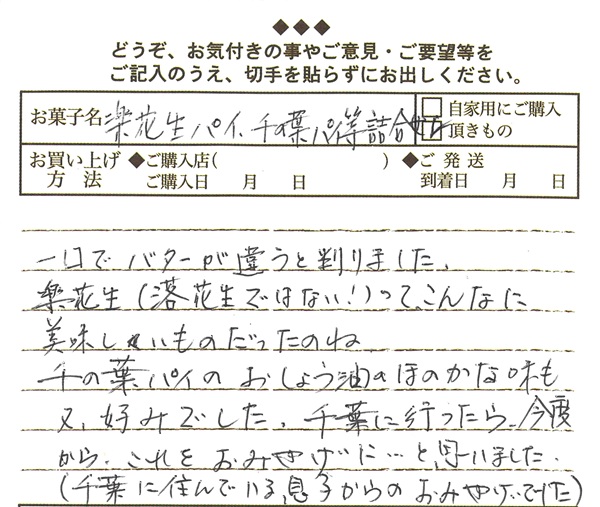 ◆◆◆
どうぞ、お気付きの事やご意見・ご要望等を
ご記入のうえ、切手を貼らずにお出しください。
お菓子名 楽花生パイ、千の葉パイ等詰合せ □自家用にご購入
□頂きもの
お買い上げ ◆ご購入店( ) ◆ご発送
方法 ご購入日 月 日 到着日 月 日
一口でバターが違うと判りました、
楽花生(落花生ではない!)って、こんなに
美味しいものだったのね
千の葉パイのおしょう油のほのかな味も
又、好みでした、千葉に行ったら、今度
から、これをおみやげに…と、思いました.
(千葉に住んでいる、息子からのおみやげでした)